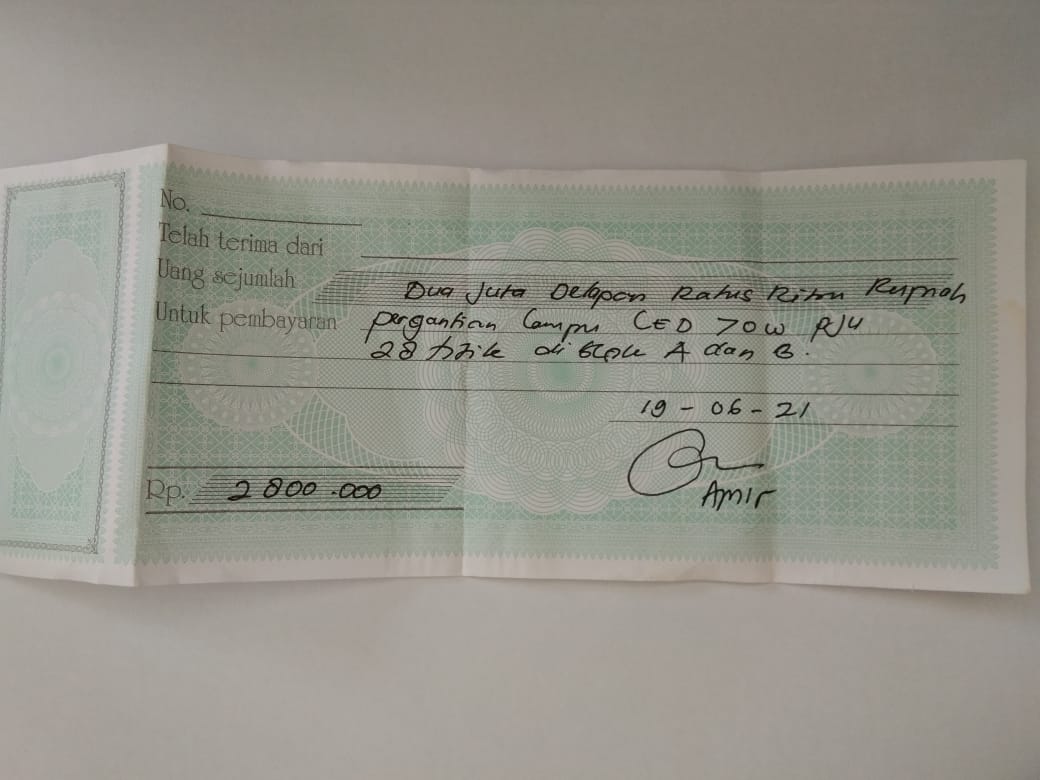 No.
Telah terima dari
Uang sejumlah Dua Juta Delapan Ratus Ribu Rupiah
Untuk pembayaran pergantian Lampu LED 70W PJU
28 titik di Blok A dan B.
19 - 06 - 21
Rp. 2800.000
Amir